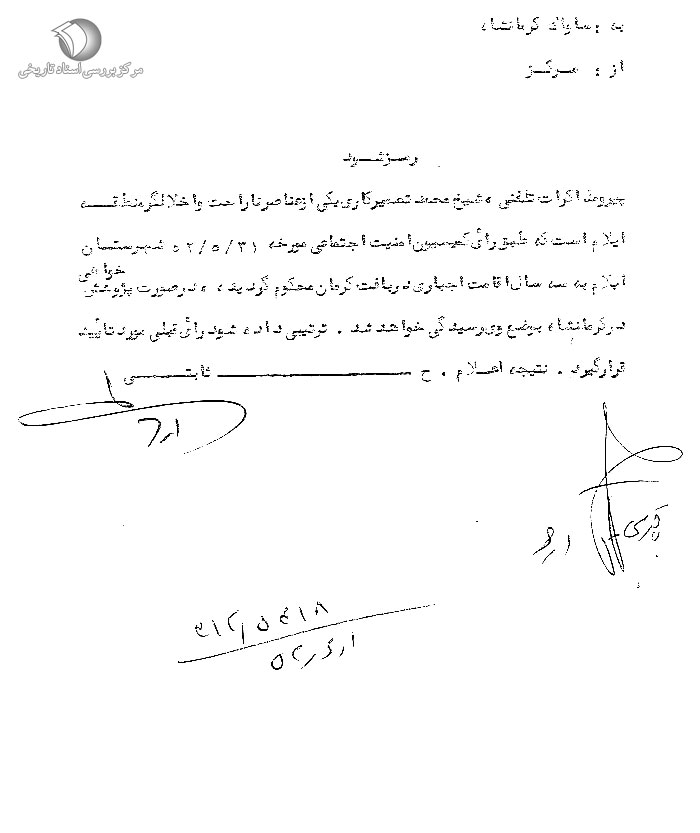 مرکز بررسی اسناد تاریخی
به : ساواک کرمانشاه
از : مرکز
رمز شود
پیرو مذاکرات تلفنی ، شیخ محمد تعمیرکاری یکی از عناصر ناراحت و اخلالگر منطقه
ایلام است که طبق رأی کمیسیون امنیت اجتماعی مورخه ۵۲/۵/۳۱ شهرستان
ایلام به سه سال اقامت اجباری در بافت کرمان محکوم گردیده ، در صورت پژوهش خواهی
در کرمانشاه بوضع وی رسیدگی خواهد شد . ترتیبی داده شود رأی قبلی مورد تأیید
قرار گیرد . نتیجه اعلام . ح ثابتی